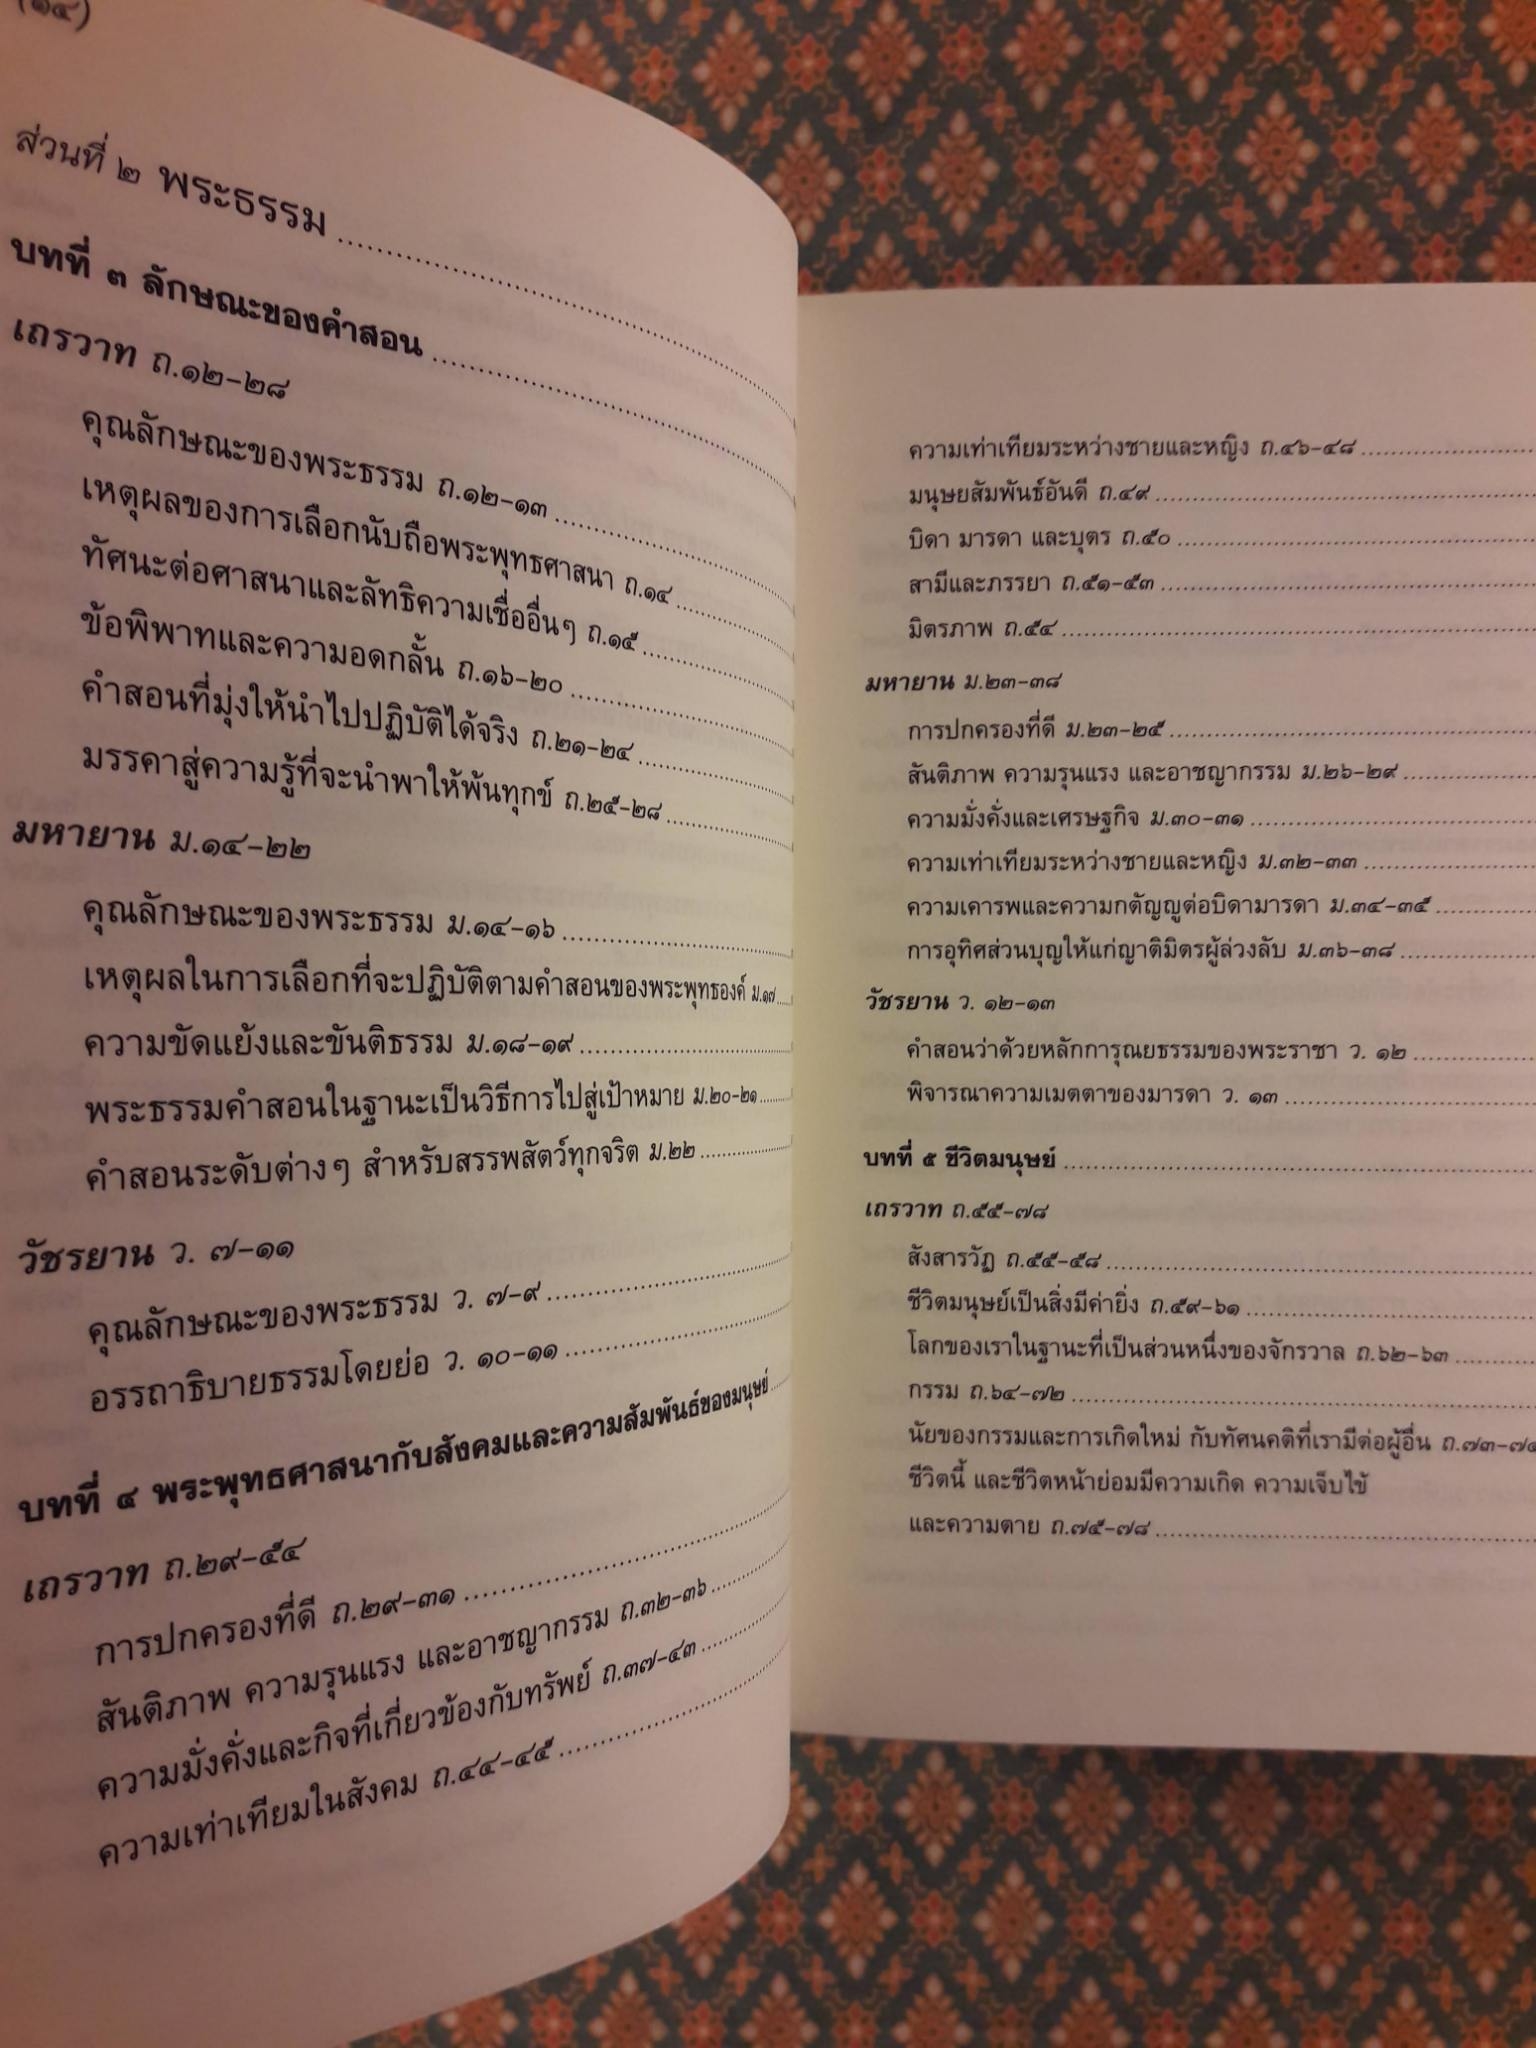 (๑๔)
ส่วนที่ ๒ พระธรรม ........................................
บทที่ ๓ ลักษณะของคำสอน ........................................
เถรวาท ถ.๑๒-๒๘
คุณลักษณะของพระธรรม ถ.๑๒-๑๓ ........................................
เหตุผลของการเลือกนับถือพระพุทธศาสนา ถ.๑๔ ....................
ทัศนะต่อศาสนาและลัทธิความเชื่ออื่นๆ ถ.๑๕ ....................
ข้อพิพาทและความอดกลั้น ถ.๑๖-๒๐ ........................................
คำสอนที่มุ่งให้นำไปปฏิบัติได้จริง ถ.๒๑-๒๔ ....................
มรรคาสู่ความรู้ที่จะนำพาให้พ้นทุกข์ ถ.๒๕-๒๘ ....................
มหายาน ม.๑๔-๒๒
คุณลักษณะของพระธรรม ม.๑๔-๑๖ ........................................
เหตุผลในการเลือกที่จะปฏิบัติตามคำสอนของพระพุทธองค์ ม.๑๗ .....
ความขัดแย้งและขันติธรรม ม.๑๘-๑๙ ........................................
พระธรรมคำสอนในฐานะเป็นวิธีการไปสู่เป้าหมาย ม.๒๐-๒๑ ..........
คำสอนระดับต่างๆ สำหรับสรรพสัตว์ทุกจริต ม.๒๒ ....................
วัชรยาน ว. ๗-๑๑
คุณลักษณะของพระธรรม ว. ๗-๙ ........................................
อรรถาธิบายธรรมโดยย่อ ว. ๑๐-๑๑ ........................................
บทที่ ๔ พระพุทธศาสนากับสังคมและความสัมพันธ์ของมนุษย์ .....
เถรวาท ถ.๒๙-๕๔
การปกครองที่ดี ถ.๒๙-๓๑ ........................................
สันติภาพ ความรุนแรง และอาชญากรรม ถ.๓๒-๓๖ ....................
ความมั่งคั่งและกิจที่เกี่ยวข้องกับทรัพย์ ถ.๓๗-๔๓ ....................
ความเท่าเทียมในสังคม ถ.๔๔-๔๕ ........................................
ความเท่าเทียมระหว่างชายและหญิง ถ.๔๖-๔๘ ....................
มนุษยสัมพันธ์อันดี ถ.๔๙ ........................................
บิดา มารดา และบุตร ถ.๕๐ ........................................
สามีและภรรยา ถ.๕๑-๕๓ ........................................
มิตรภาพ ถ.๕๔ ........................................
มหายาน ม.๒๓-๓๘
การปกครองที่ดี ม.๒๓-๒๕ ........................................
สันติภาพ ความรุนแรง และอาชญากรรม ม.๒๖-๒๙ ....................
ความมั่งคั่งและเศรษฐกิจ ม.๓๐-๓๑ ........................................
ความเท่าเทียมระหว่างชายและหญิง ม.๓๒-๓๓ ....................
ความเคารพและความกตัญญูต่อบิดามารดา ม.๓๔-๓๕ ....................
การอุทิศส่วนบุญให้แก่ญาติมิตรผู้ล่วงลับ ม.๓๖-๓๘ ....................
วัชรยาน ว. ๑๒-๑๓
คำสอนว่าด้วยหลักการุณยธรรมของพระราชา ว. ๑๒ ....................
พิจารณาความเมตตาของมารดา ว. ๑๓ ........................................
บทที่ ๕ ชีวิตมนุษย์ ........................................
เถรวาท ถ.๕๕-๗๘
สังสารวัฏ ถ.๕๕-๕๘ ........................................
ชีวิตมนุษย์เป็นสิ่งมีค่ายิ่ง ถ.๕๙-๖๑ ........................................
โลกของเราในฐานะที่เป็นส่วนหนึ่งของจักรวาล ถ.๖๒-๖๓ ..........
กรรม ถ.๖๔-๗๒ ........................................
นัยของกรรมและการเกิดใหม่ กับทัศนคติที่เรามีต่อผู้อื่น ถ.๗๓-๗๔
ชีวิตนี้ และชีวิตหน้าย่อมมีความเกิด ความเจ็บไข้
และความตาย ถ.๗๕-๗๘ ........................................